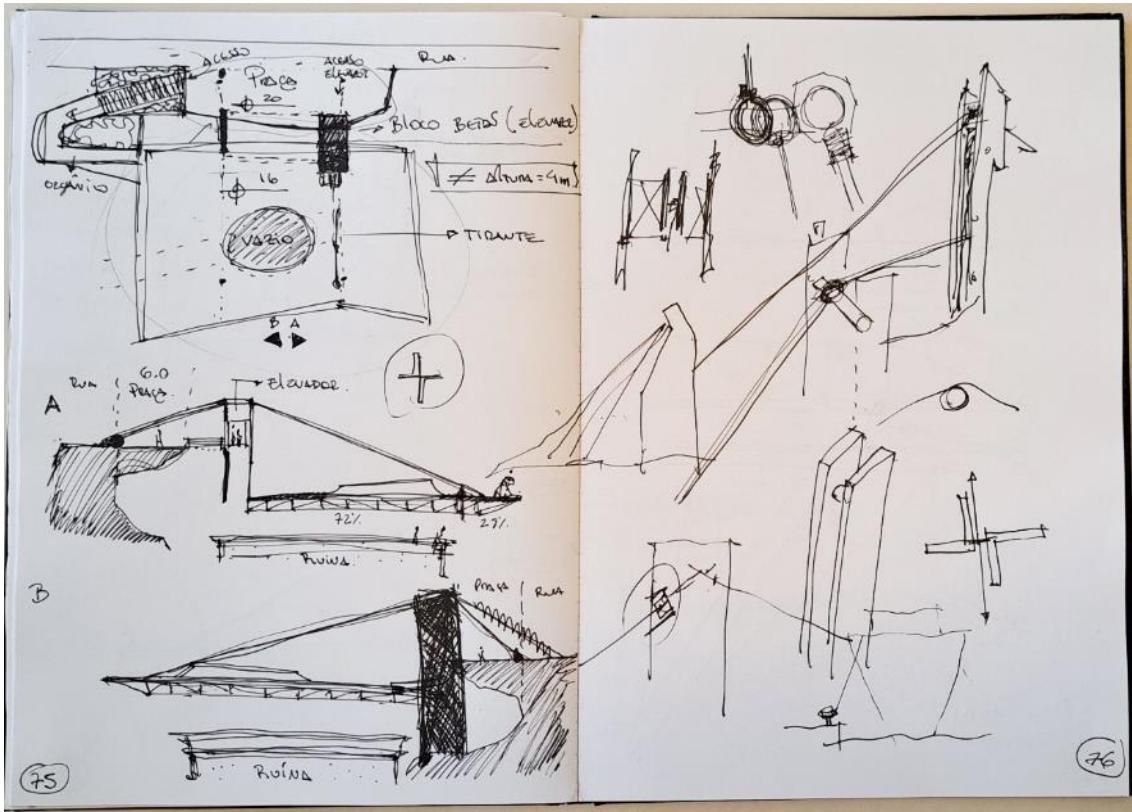 ACESSO
ACESSO
ELEVADOR
RUA
PRAÇA
20
BLOCO BETÃO (ELEVADOR)
ORGÂNICO
16
≠ ALTURA = 4m
VAZIO
TIRANTE
B A
RUA
6.0
PRAÇA
ELEVADOR
A
72%
29%
RUÍNA
B
PRAÇA
RUA
RUÍNA
75
76